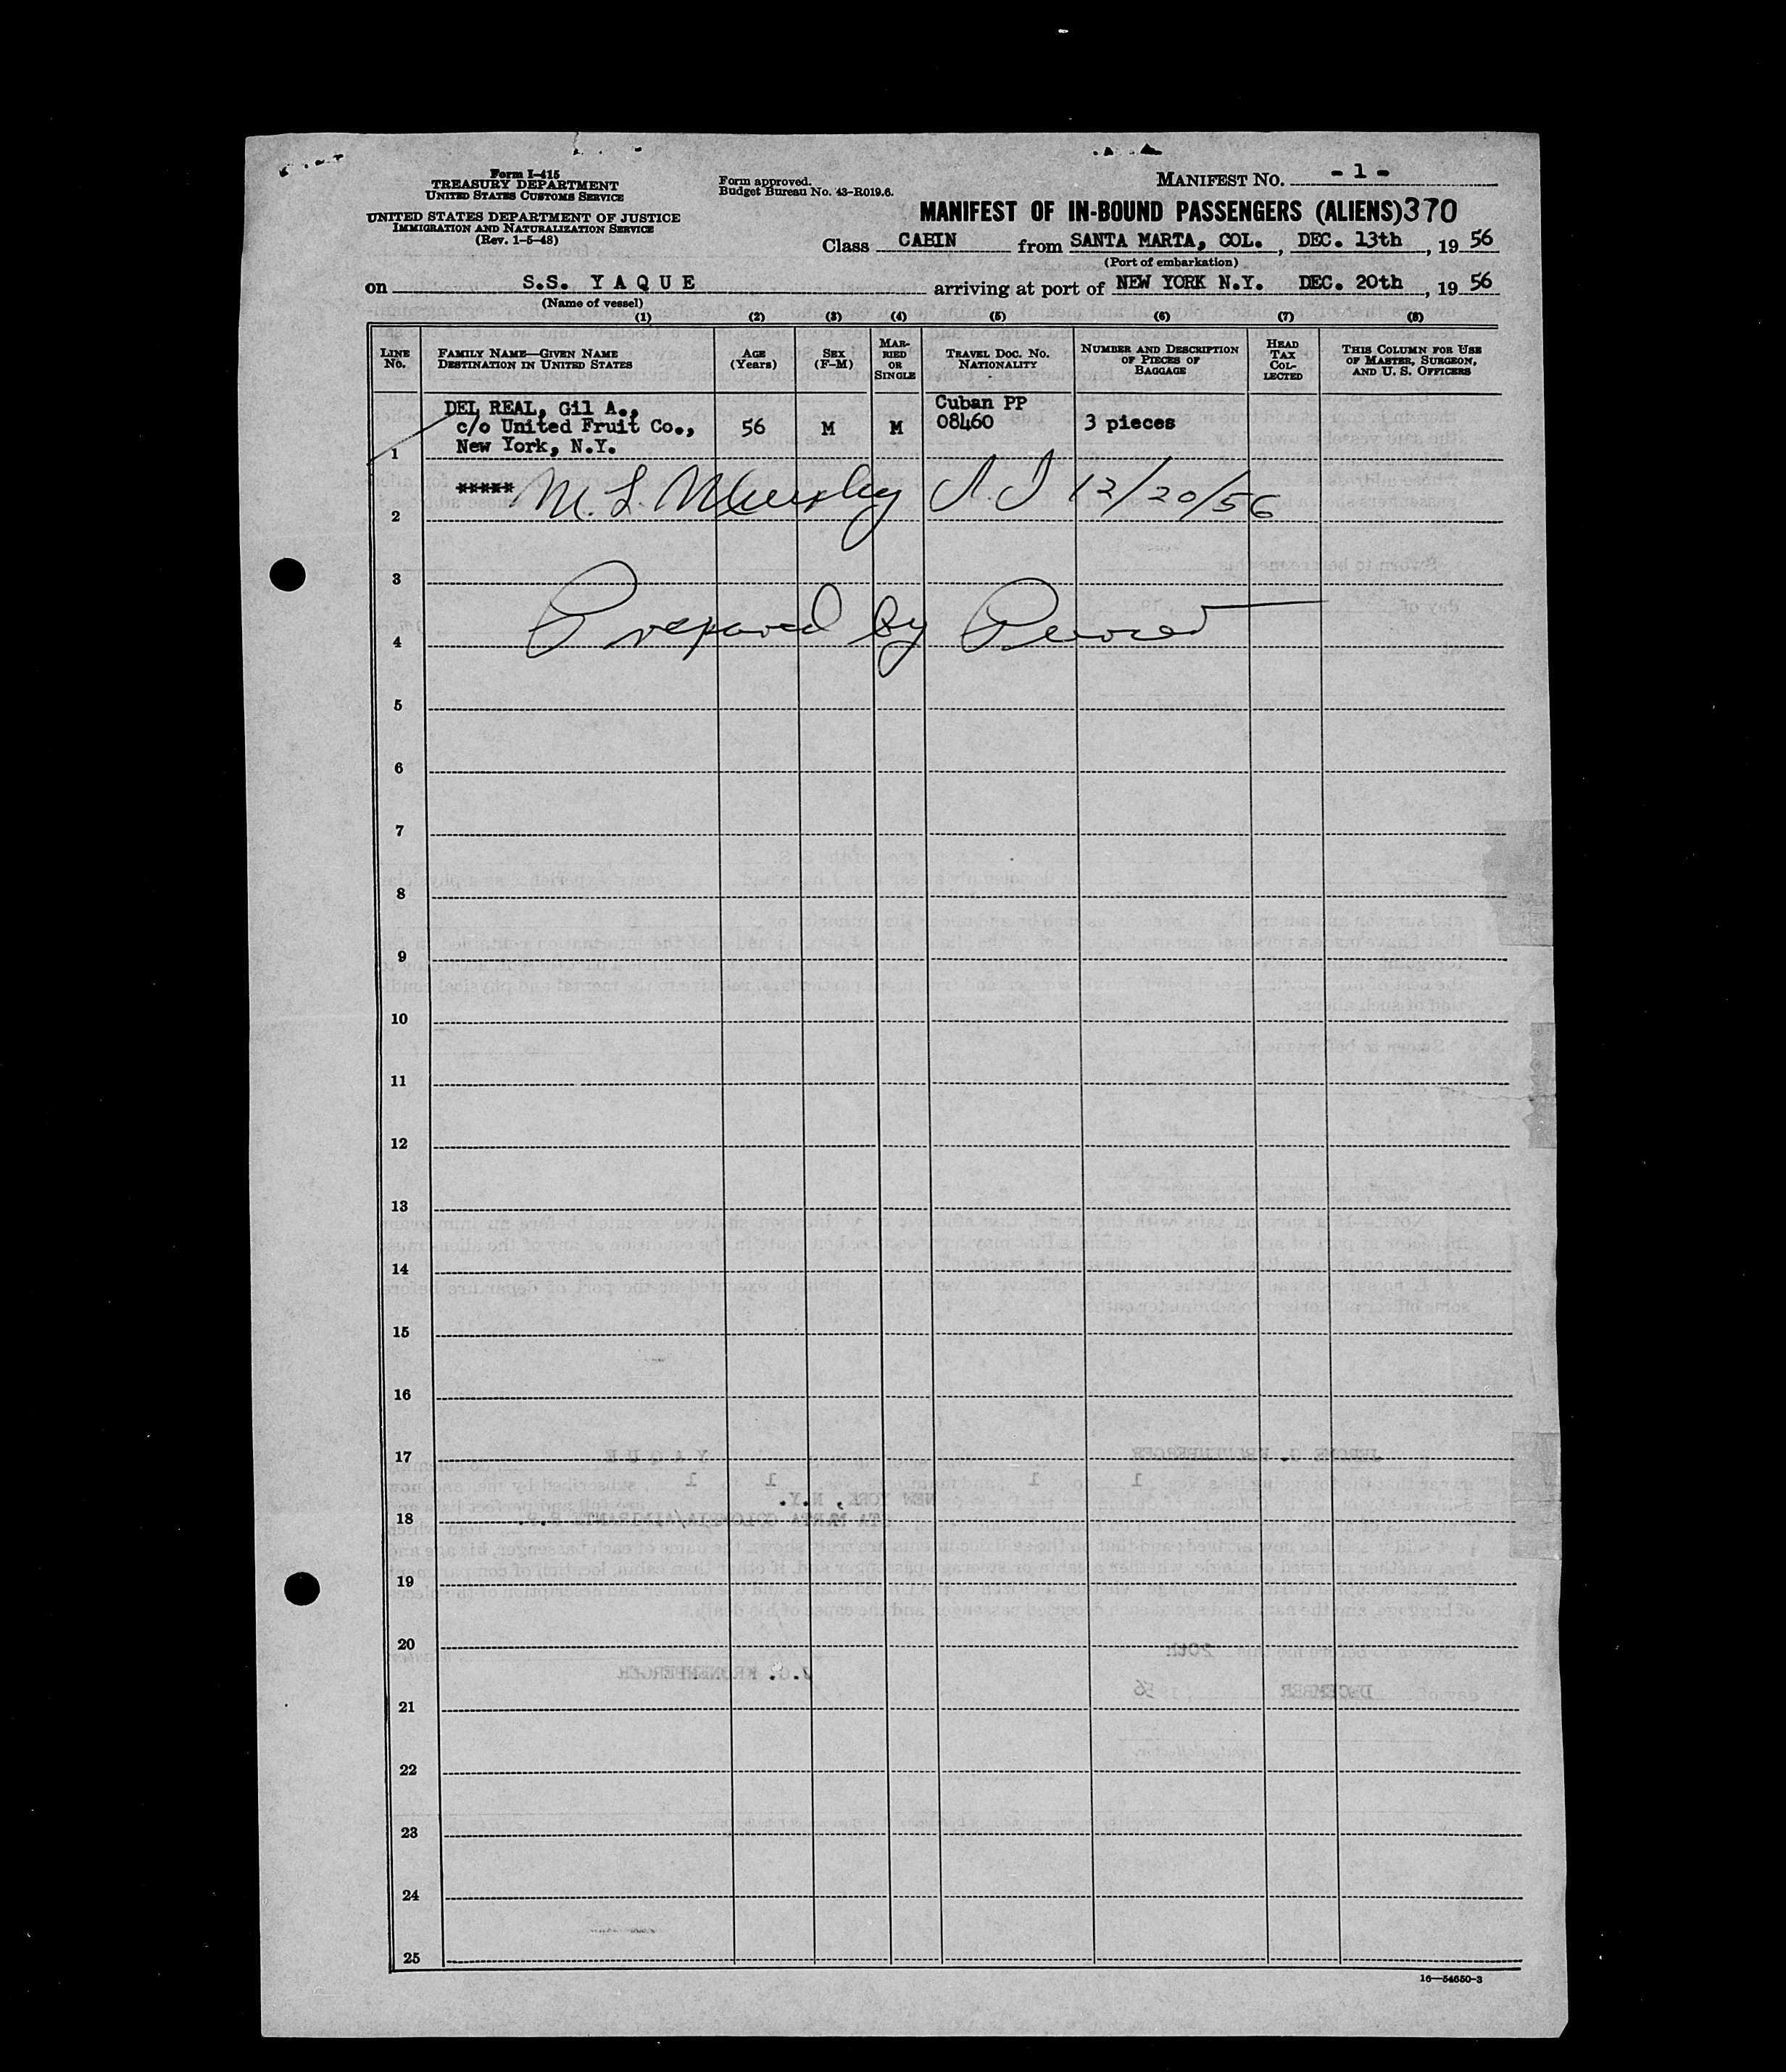 Form I-415
TREASURY DEPARTMENT
UNITED STATES CUSTOMS SERVICE
UNITED STATES DEPARTMENT OF JUSTICE
IMMIGRATION AND NATURALIZATION SERVICE
(Rev. 1-5-48)
Form approved.
Budget Bureau No. 43-R019.6.
MANIFEST NO. - 1 -
MANIFEST OF IN-BOUND PASSENGERS (ALIENS) 370
Class CABIN from SANTA MARTA, COL., DEC. 13th, 19 56
(Port of embarkation)
on S.S. YAQUE arriving at port of NEW YORK N.Y. DEC. 20th, 19 56
(Name of vessel)
(1) (2) (3) (4) (5) (6) (7) (8)
LINE No.
FAMILY NAME—GIVEN NAME
DESTINATION IN UNITED STATES
AGE (Years)
SEX (F-M)
MARRIED OR SINGLE
TRAVEL DOC. NO.
NATIONALITY
NUMBER AND DESCRIPTION OF PIECES OF BAGGAGE
HEAD TAX COLLECTED
THIS COLUMN FOR USE OF MASTER, SURGEON, AND U. S. OFFICERS
DEL REAL, Gil A., Cuban PP
c/o United Fruit Co., 56 M M 08460 3 pieces
New York, N.Y.
1
M. L. Murphy 12/20/56
2
3
Prepared by
4
5
6
7
8
9
10
11
12
13
14
15
16
17
18
19
20
21
22
23
24
25
16—54650-3